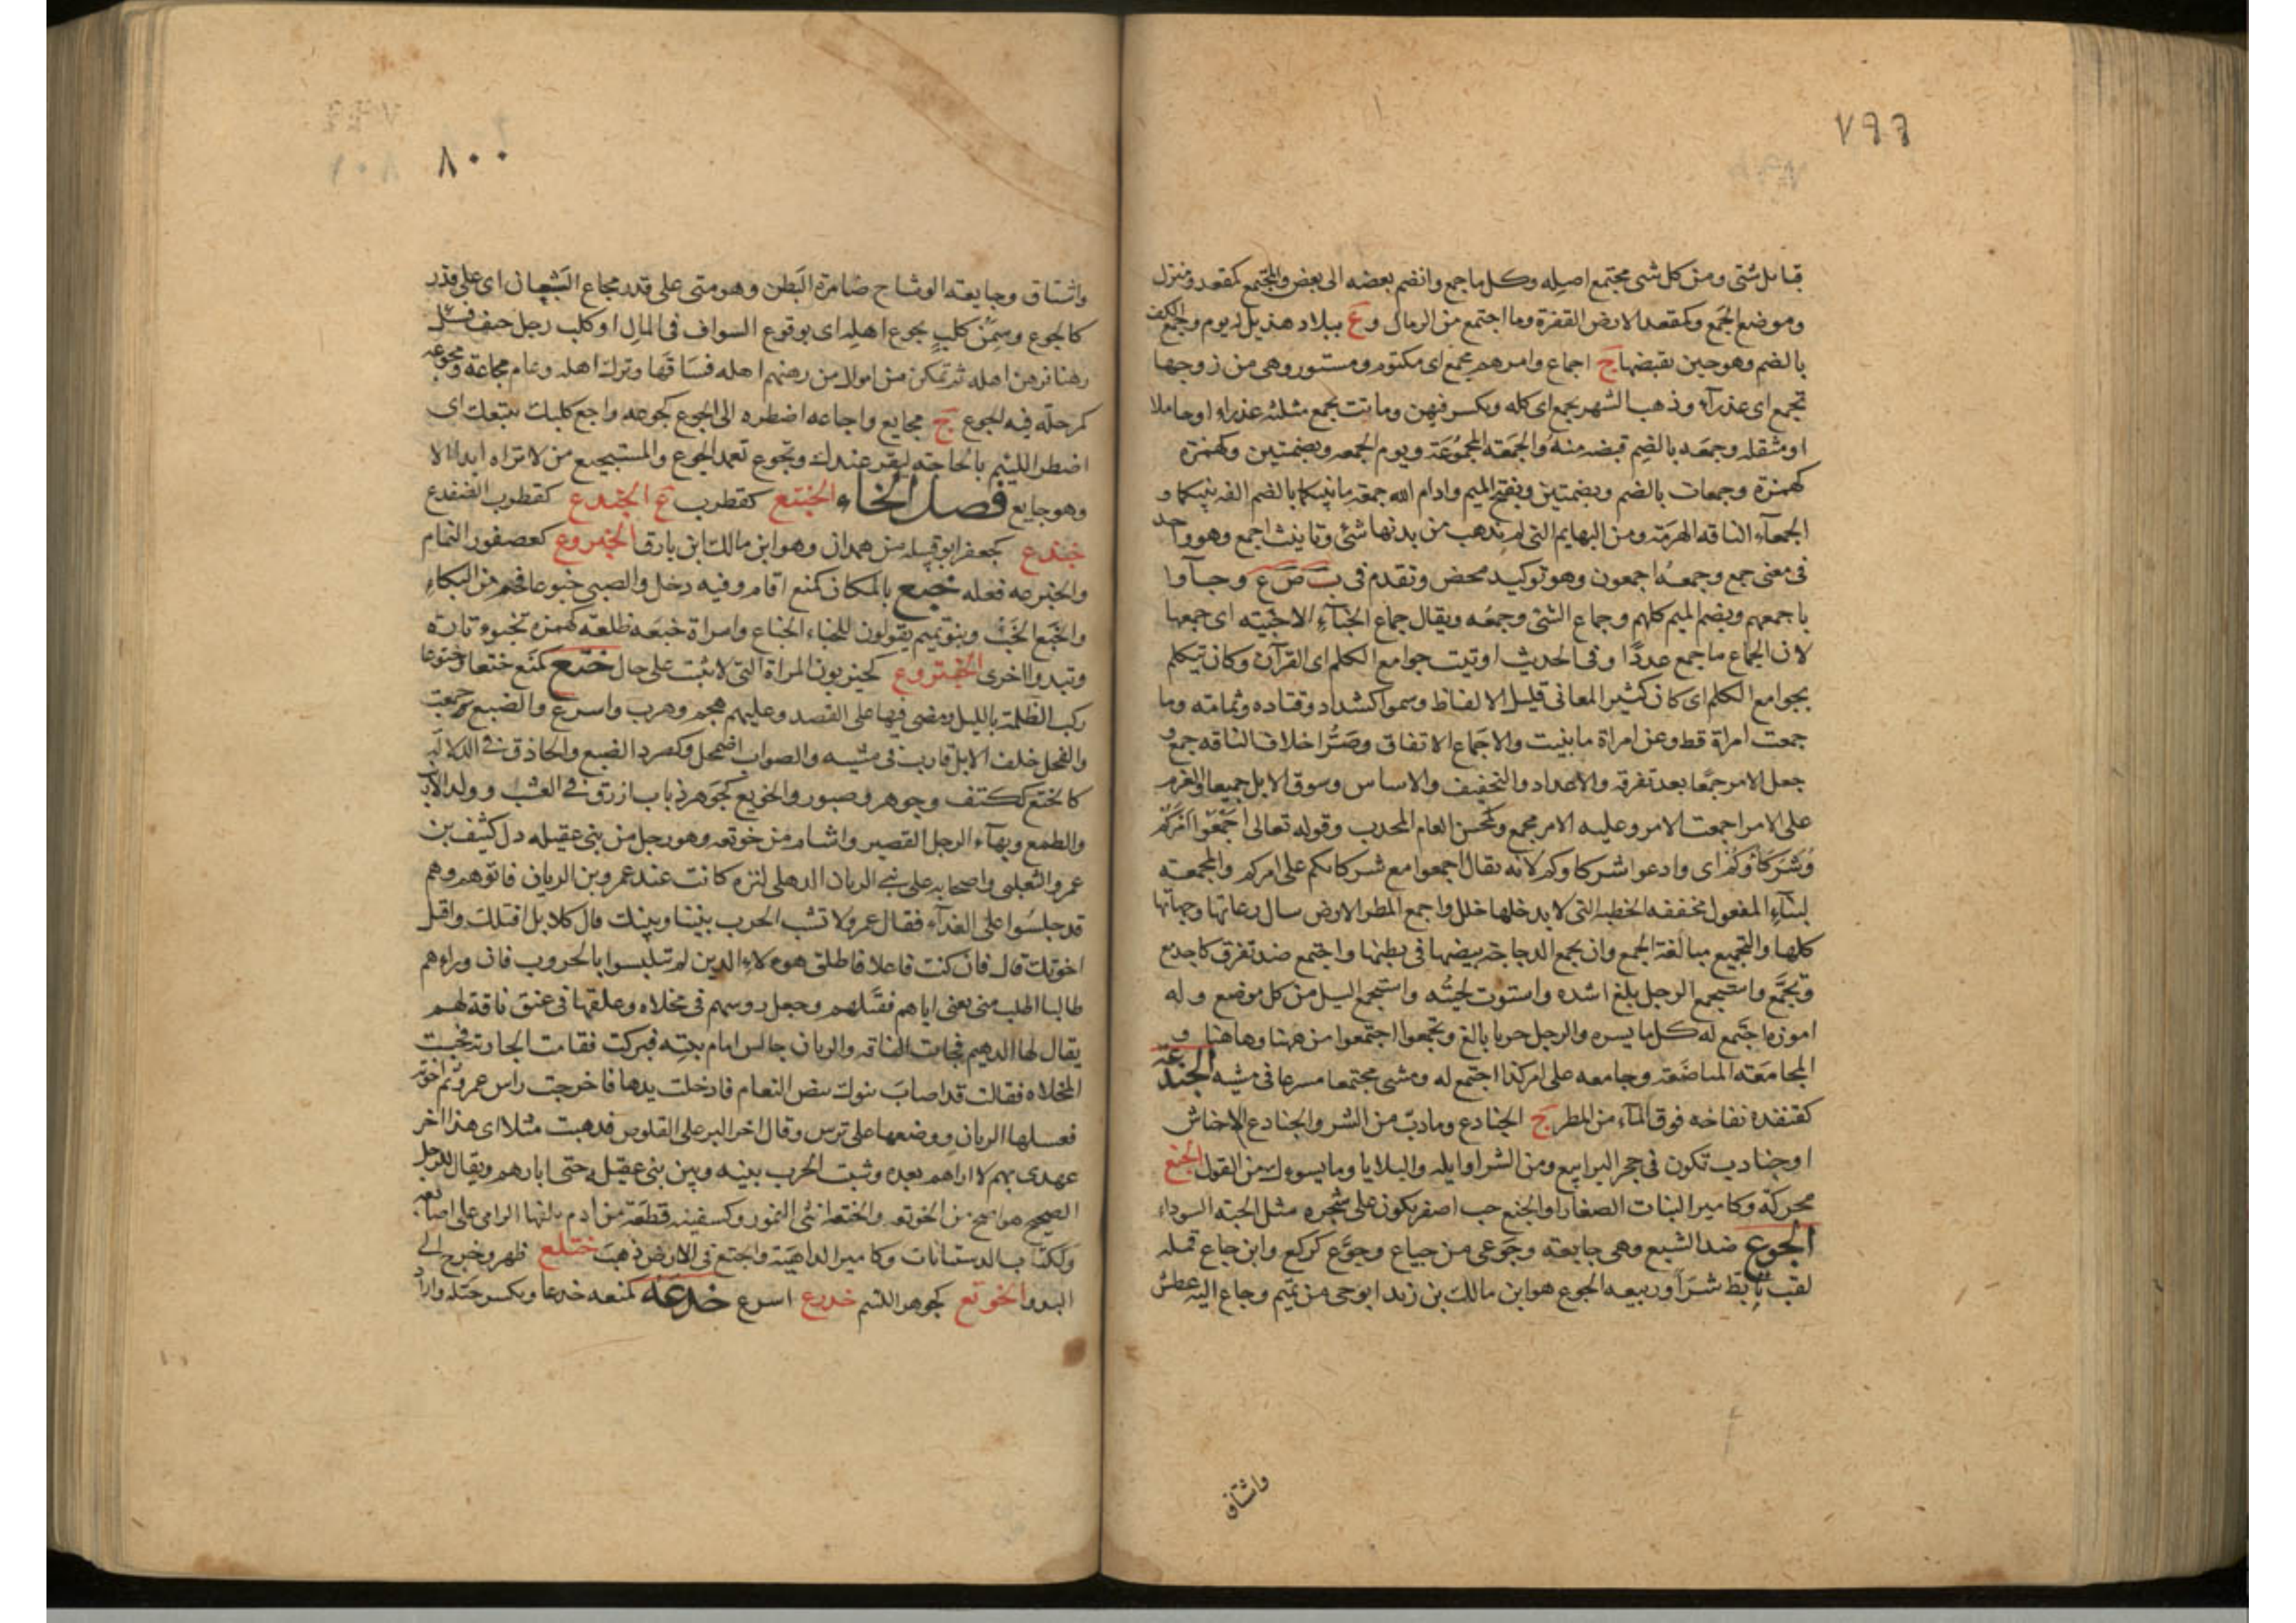 ٧٩٩
قبائل شتى ومن كل شى مجتمع اصله وكل ما جمع وانضم بعضه الى بعض والمجمع كمقعد ومنزل
وموضع الجمع وكمقعد الارض القفزة وما اجتمع من الرمال و ع ببلاد هذيل له يوم وجمع الكف
بالضم وهو حين تقبضها ج اجماع وامرهم بجمع اى مكتوم ومستور وهى من زوجها
بجمع اى عذرآء وذهب الشهر بجمع اى كله ويكسر فيهن وماتت بجمع مثلثه عذراء او حاملا
او مثقله وجمعه بالضم قبضه منه والجمعه المجموعة ويوم الجمعه وبضمتين وكهمزة
كهمزة وجمعات بالضم وبضمتين وبفتح الميم وادام الله جمعة ما بينكما بالضم الفه بينكما و
الجمعآء الناقه الهرمة ومن البهايم التى لم يذهب من بدنها شئ وتانيث اجمع وهو واحد
فى معنى جمع وجمعه اجمعون وهو توكيد محض وتقدم فى ب ص ع وجآوا
باجمعهم وبضم الميم كلهم وجماع الشئ وجمعه ويقال جماع الخبآء الاخبيه اى جمعها
لان الجماع ما جمع عددا وفى الحديث اوتيت جوامع الكلم اى القرآن وكان يتكلم
بجوامع الكلم اى كان كثير المعانى قليل الالفاظ وسموا كشداد وقتاده وثمامه وما
جمعت امراة قط وعن امراة ما بنيت والاجماع الاتفاق وصر اخلاف الناقه جمع و
جعل الامر جمعا بعد تفرقه والاعداد والتجفيف والاساس وسوق الابل جميعا والعزم
على الامر اجمعت الامر وعليه الامر مجمع وكمحسن العام المجدب وقوله تعالى اجمعوا امركم
وشركاءكم اى وادعوا شركاوكم لانه يقال اجمعوا مع شركائكم على امركم والمجمعة
لبنآء المفعول مخففه الخطبه التى لا يدخلها خلل واجمع المطر الارض سال رعاتها وجهاتها
كلها والتجميع مبالغة الجمع وان يجمع الدجاجه بيضها فى بطنها واجتمع ضد تفرق كاجدمع
وتجمع واستجمع الرجل بلغ اشده واستوت لحيته واستجمع السيل من كل موضع وله
اموره اجتمع له كل ما يسره والرجل حريا بالغ وتجمعوا اجتمعوا من ههنا وهاهنا و
المجامعه المباضعة وجامعه على امر كذا اجتمع له ومشى مجتمعا مسرعا فى مشيه الجندعة
كقنفذه نفاخه فوق المآء من المطر ج الجنادع وما دب من الشر والجنادع الاحناش
او جنادب تكون فى حجر اليرابيع ومن الشر اوايله والبلايا وما يسوءك من القول الجنع
محركة وكامير النبات الصغار او الجنع حب اصفر يكون على شجره مثل الحبه السوداء
الجوع ضد الشبع وهى جايعه وجوعى من جياع وجوع كركع وابن جاع قمله
لقب تابط شرا وربيعه الجوع هو ابن مالك بن زيد ابوحى من تميم وجاع اليه عطش
واشتاق
٨٠٠
واشتاق وجايعة الوشاح ضامرة البطن وهو منى على قدر مجاع الشبعان اى على قدر
كالجوع وسمن كلب بجوع اهله اى بوقوع السواف فى المال او كلب رجل خيف فسئل
رهنا فرهن اهله ثم تمكن من اموال من رهنهم اهله فساقها وترك اهله وعام مجاعة ومجوعه
كمرحله فيه الجوع ج مجايع واجاعه اضطره الى الجوع كجوعه واجع كلبك يتبعك اى
اضطر اللئيم بالحاجه ليقر عندك وتجوع تعمد الجوع والمستجيع من لا تراه ابدا الا
وهو جايع فصل الخاء الخبتع كقطرب ع الخبدع كقطرب الضفدع
خبذع كجعفر ابو قبيله من همدان وهو ابن مالك ابن بارق الخبروع كعصفور النمام
والخبرعه فعله خبع بالمكان كمنع اقام وفيه دخل والصبى خبوعا فحم من البكاء
والخبع الخبء وبنو تميم يقولون للخباء الخباع وامراة خبعه طلعه كهمزه تختبئ تارة
وتبدوا اخرى الختروع كحيزبون المراة التى لا تثبت على حال ختع كمنع ختعا وختوعا
ركب الظلمة بالليل ومضى فيها على القصد وعليهم هجم وهرب واسرع والضبع خمعت
والفحل خلف الابل قارب فى مشيه والصواب اضمحل وكصرد الضبع والحاذق فى الدلاله
كالختع ككتف وجوهر وصبور والخويع كجوهر ذباب ازرق فى العشب وولد الارنب
والطمع وبهآء الرجل القصير واشام من خوتعه وهو رجل من بنى عقيله دل كثيف بن
عمرو التغلبى واصحابه على بنى الريان الدهلى لتره كانت عند عمرو بن الريان فاتوهم وهم
قد جلسوا على الغدآء فقال عمرو لا تشب الحرب بيننا وبينك قال كلا بل اقتلك واقتل
اخوتك قال فان كنت فاعلا فاطلق هوءلاء الدين لم تتلبسوا بالحروب فان وراءهم
طالبا اطلب منى يعنى اياهم فقتلهم وجعل روسهم فى مخلاه وعلقها فى عنق ناقة لهم
يقال لها الدهيم فجات الناقه والريان جالس امام بيته فبركت فقامت الجارية فجبت
المخلاه فقالت قد اصاب بنوك بيض النعام فادخلت يدها فاخرجت راس عمرو ثم اخوته
فغسلها الريان ووضعها على ترس وقال اخر البز على القلوص فذهبت مثلا اى هذا اخر
عهدى بهم لا اراهم بعده وشبت الحرب بينه وبين بنى عقيله حتى ابارهم ويقال للرجل
الصحيح هو اصح من الخوتعه والختعه انثى النمور وكسفينه قطعة من ادم يلفها الرامى على اصابعه
وككتاب الدستبانات وكامير الداهية واختع فى الارض ذهب ختلع ظهر وخرج الى
البدو الخوتع كجوهر اللئيم خدرع اسرع خدعه كمنعه خدعا ويكسر ختله واراد